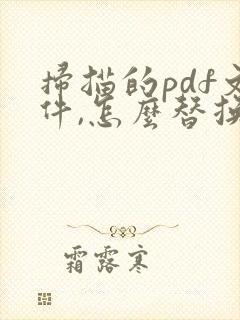 掃描的pdf文
件,怎麽替換
霜露寒